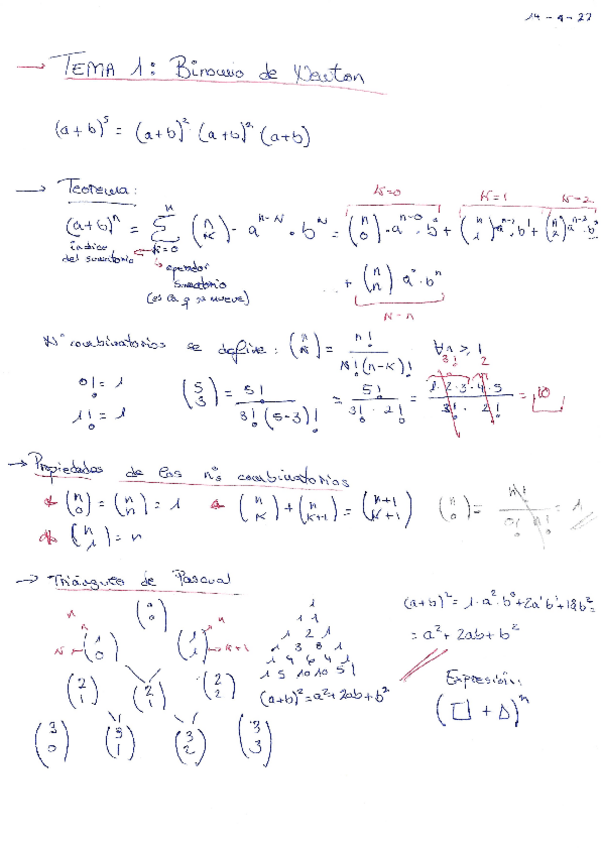 14-9-22
→ TEMA 1: Binomio de Newton
(a+b)⁵ = (a+b)² · (a+b)² (a+b)
→ Teorema:
K=0 K=1 K=2
(a+b)ⁿ = Σ (n K=0) (n K) · aⁿ⁻ᴷ · bᴷ = (n 0) · aⁿ⁻⁰ · b⁰ + (n 1) aⁿ⁻¹ · b¹ + (n 2) aⁿ⁻² · b²
índice del sumatorio
operador sumatorio
(es la q se mueve)
... + (n n) a⁰ · bⁿ
K=n
Nº combinatorios se define: (n K) = n! / K!(n-K)! ∀n ≥ 1
0! = 1
1! = 1
(5 3) = 5! / 3!(5-3)! = 5! / 3! · 2! = 1·2·3·4·5 / 3! · 2! = 10
3! 2
→ Propiedades de los nºs combinatorios
(n 0) = (n n) = 1 (n K) + (n K+1) = (n+1 K+1) (n 0) = n! / 0! n! = 1
(n 1) = n
→ Triángulo de Pascual
(0 0)
n K (1 0) (1 1) n K+1
(2 1) (2 1) (2 2)
(3 0) (3 1) (3 2) (3 3)
1
1 1
1 2 1
1 3 3 1
1 4 6 4 1
1 5 10 10 5 1
(a+b)² = a² + 2ab + b²
(a+b)² = 1·a²·b⁰ + 2a¹b¹ + 1a⁰b² =
= a² + 2ab + b²
Expresión:
(□ + Δ)ⁿ